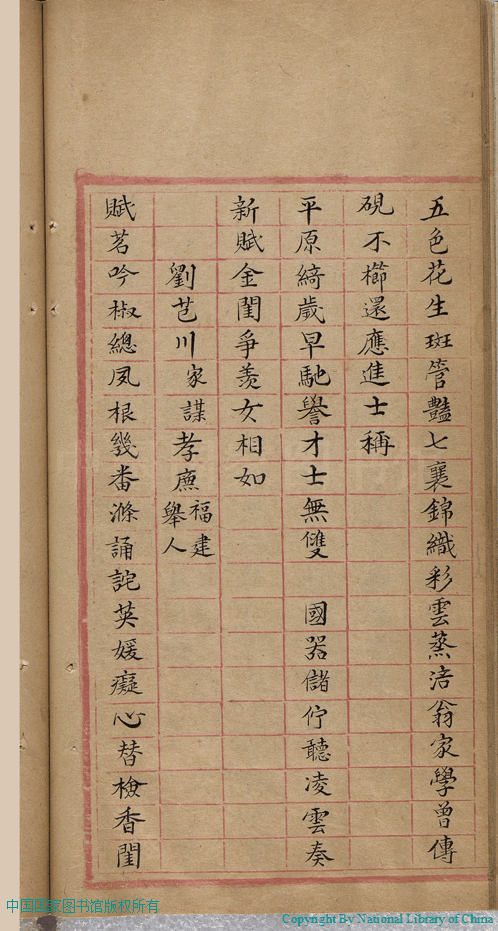 五色花生斑管豔七襄錦織彩雲蒸涪翁家學曾傳
硯不櫛還應進士稱
平原綺歲早馳譽才士無雙 國器儲佇聽凌雲奏
新賦金閨爭羨女相如
劉芑川家謀孝廉福建舉人
賦茗吟椒總夙根幾番滌誦詫英媛癡心替檢香閨
中国国家图书馆版权所有
Copyright By National Library of China